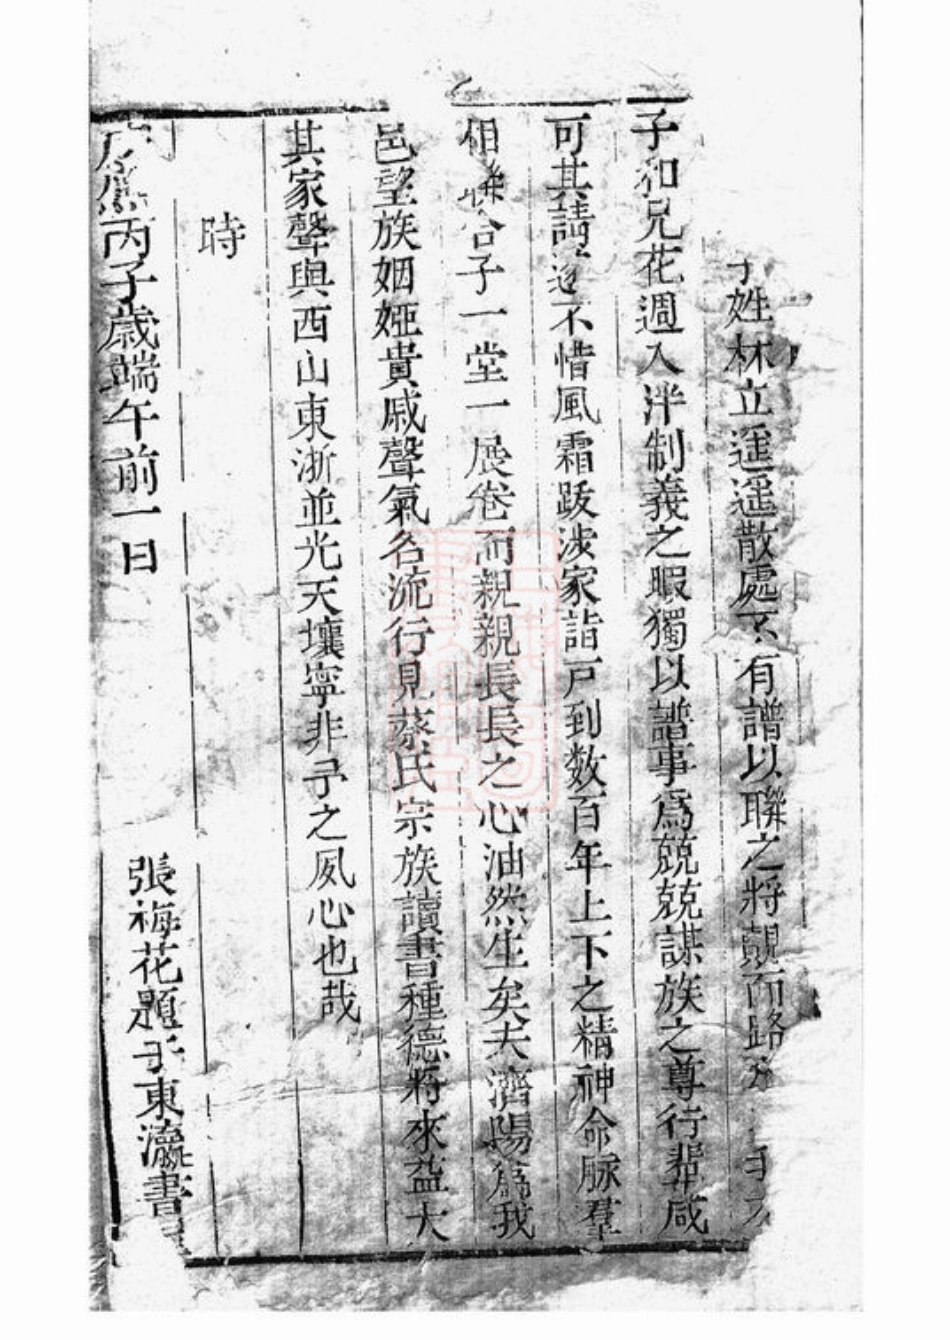 姓林立遥遥散處不有譜以聯之將覿而路
子和兄花週入泮制義之暇獨以譜事爲兢兢謀族之尊行輩咸
可其請遂不惜風霜跋涉家詣戸到数百年上下之精神命脉羣
相聯合子一堂一展卷而親親長長之心油然生矣夫濟陽爲我
邑望族姻婭貴戚聲氣名流行見蔡氏宗族讀書種德將來益大
其家聲與西山東浙並光天壤寧非予之夙心也哉
時
康熙丙子歳端午前一日
張梅花題于東瀛書